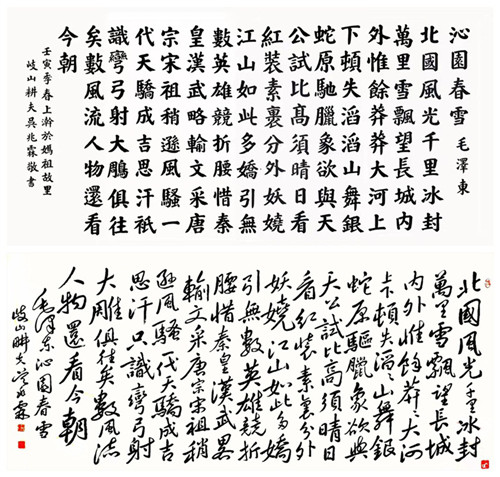 沁園春雪 毛澤東
北國風光千里冰封
萬里雪飄望長城内
外惟餘莽莽大河上
下頓失滔滔山舞銀
蛇原馳臘象欲與天
公試比高須晴日看
紅裝素裹分外妖嬈
江山如此多嬌引無
數英雄競折腰惜秦
皇漢武略輸文采唐
宗宋祖稍遜風騷一
代天驕成吉思汗祇
識彎弓射大鵰俱往
矣數風流人物還看
今朝
壬寅季春上澣於媽祖故里
岐山耕夫吳兆霖敬書
北國風光千里冰封
萬里雪飄望長城
内外惟餘莽莽大河
上下頓失滔滔山舞銀
蛇原驅臘象欲與
天公試比高須晴日
看紅裝素裹分外
妖嬈江山如此多嬌
引無數英雄競折
腰惜秦皇漢武略
輸文采唐宗宋祖稍
遜風騷一代天驕成吉
思汗只識彎弓射
大雕俱往矣數風流
人物還看今朝
毛澤東沁園春雪
岐山耕夫吳兆霖